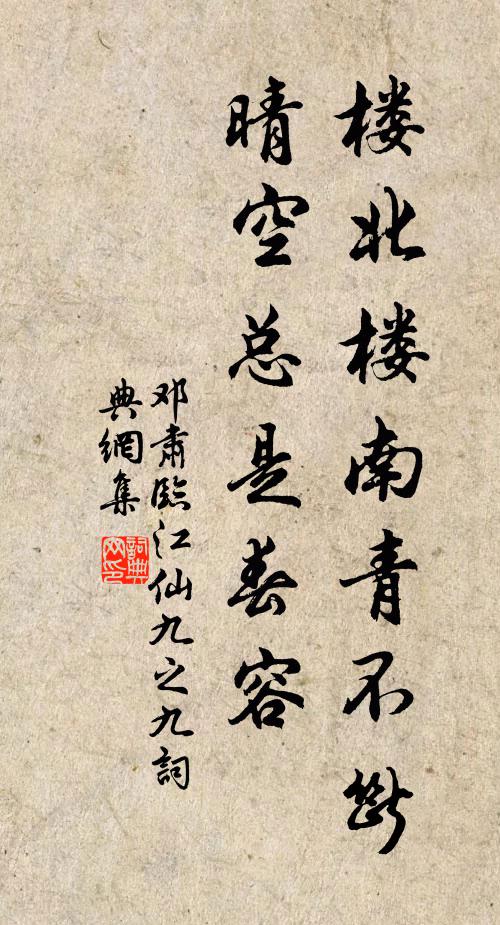 楼北楼南青不断
晴空总是春容
邓肃臨江仙九之九詞
典網集
詞典
网印